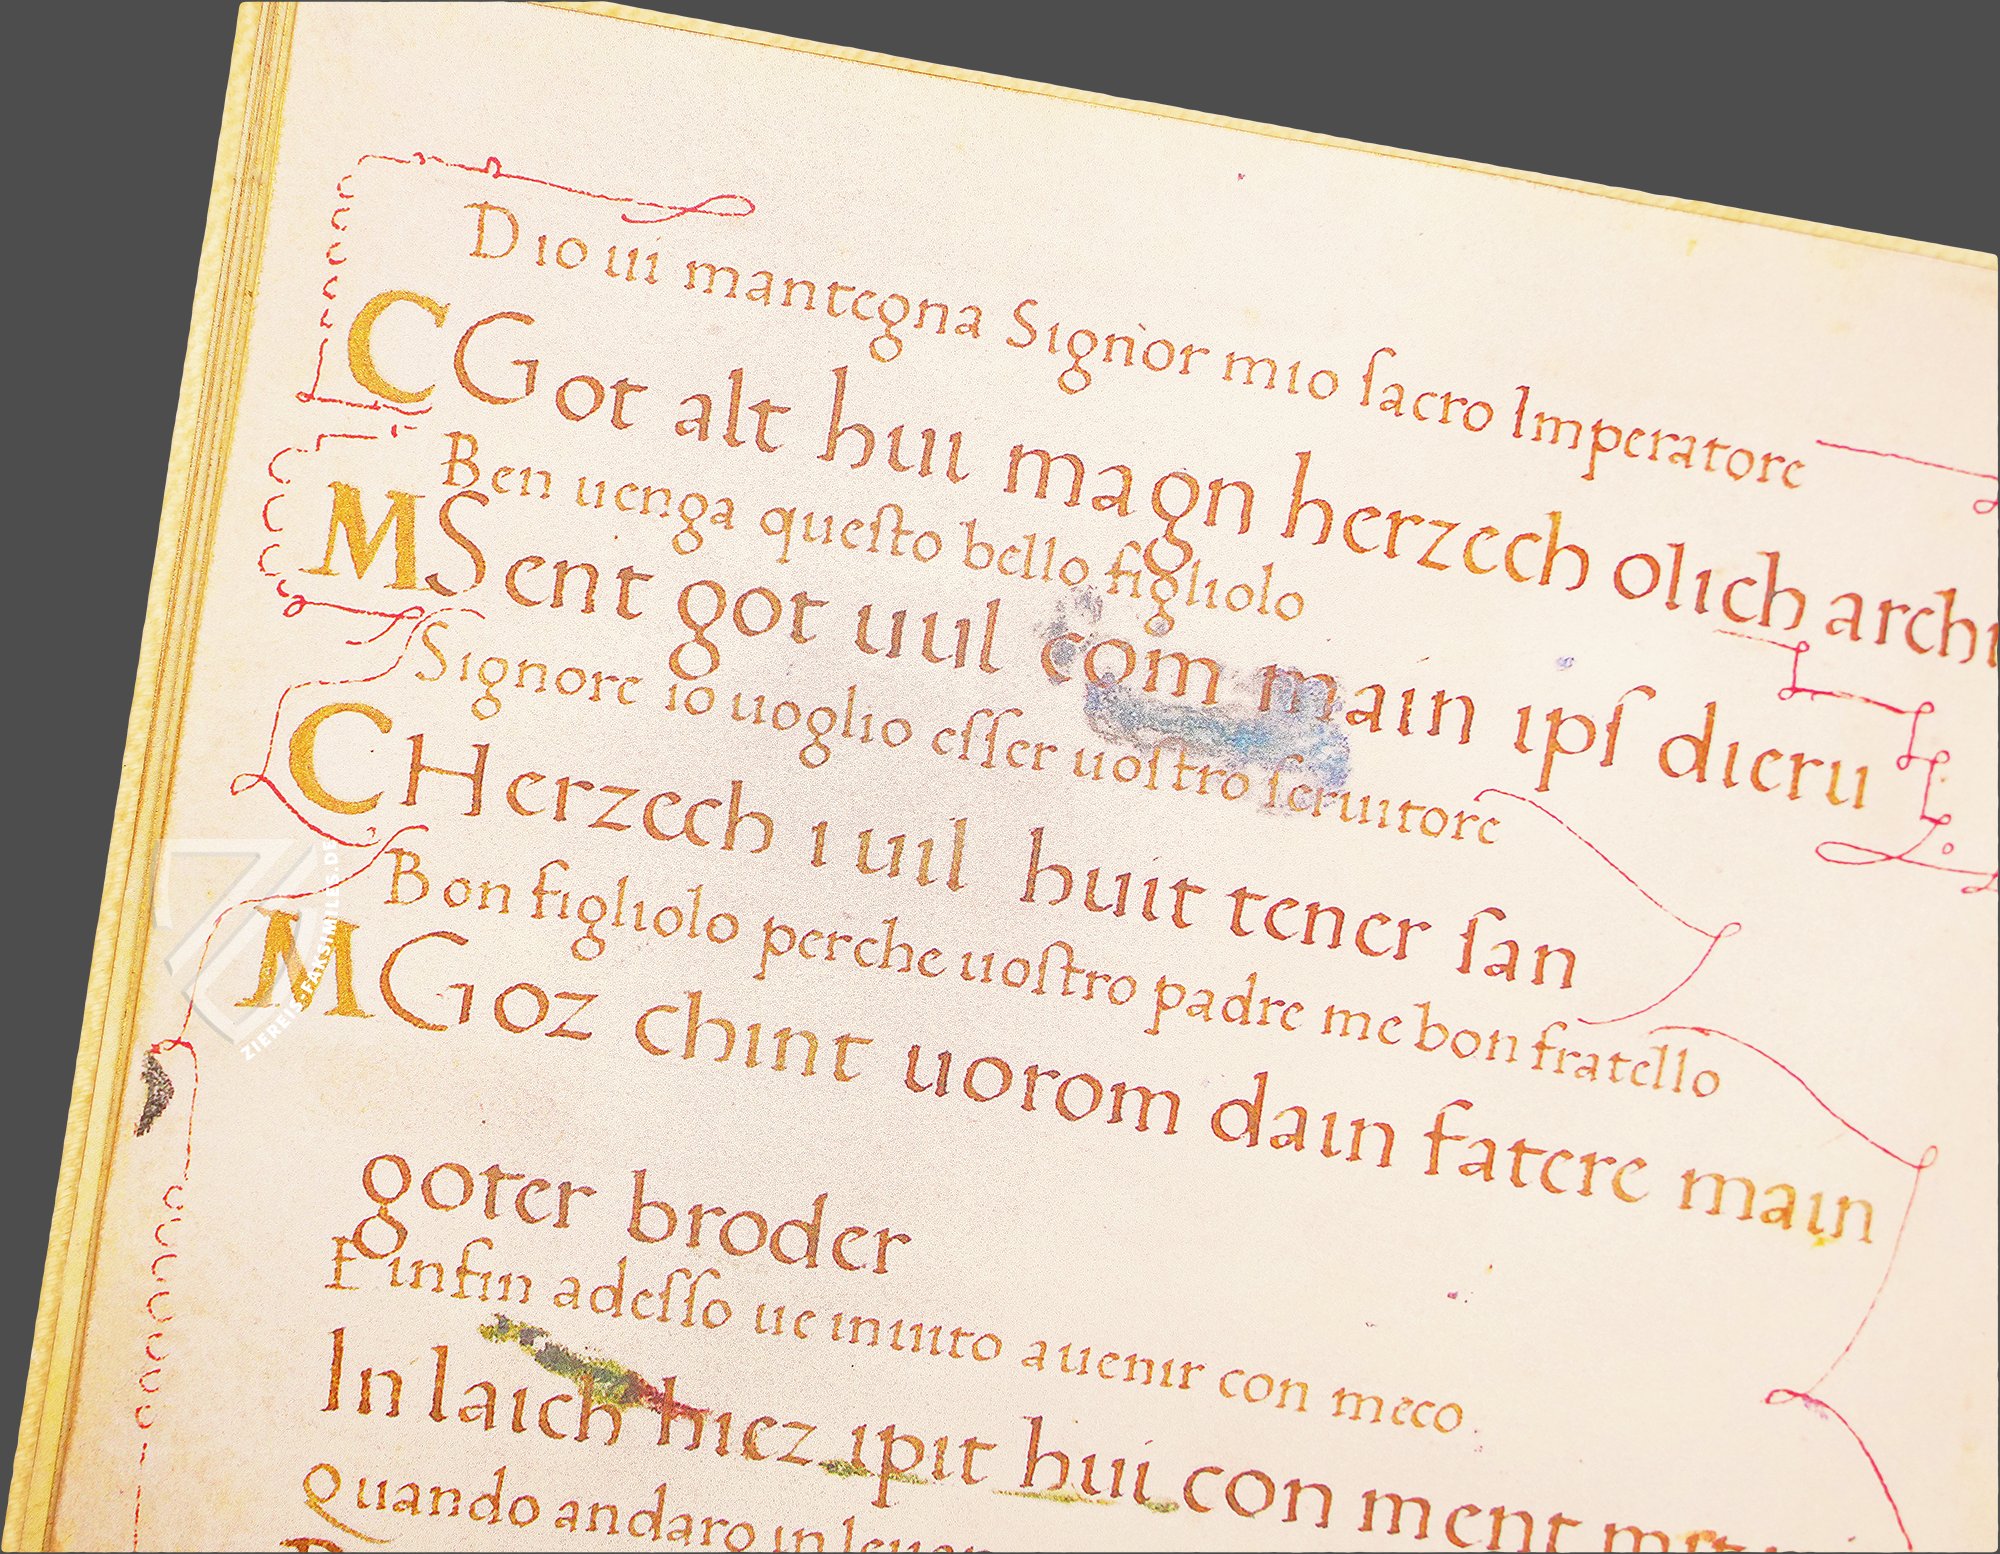 Dio ui mantegna Signor mio ſacro Imperatore
C Got alt huı magn herzech olich archı
Ben uenga queſto bello figliolo
M Sent got uuıl com main ipſ dieru
Signore io uoglio eſſer uoſtro ſeruitore
C Herzech i uuil huit tener ſan
Bon figliolo perche uoſtro padre me bon fratello
M Goz chint uorom dain fatere main
goter broder
Einfin adeſſo ue inuito auenir con meco.
In laich hiez ipit hui con ment
Quando andaro in leuan
ZIEREIS-FAKSIMILES.DE